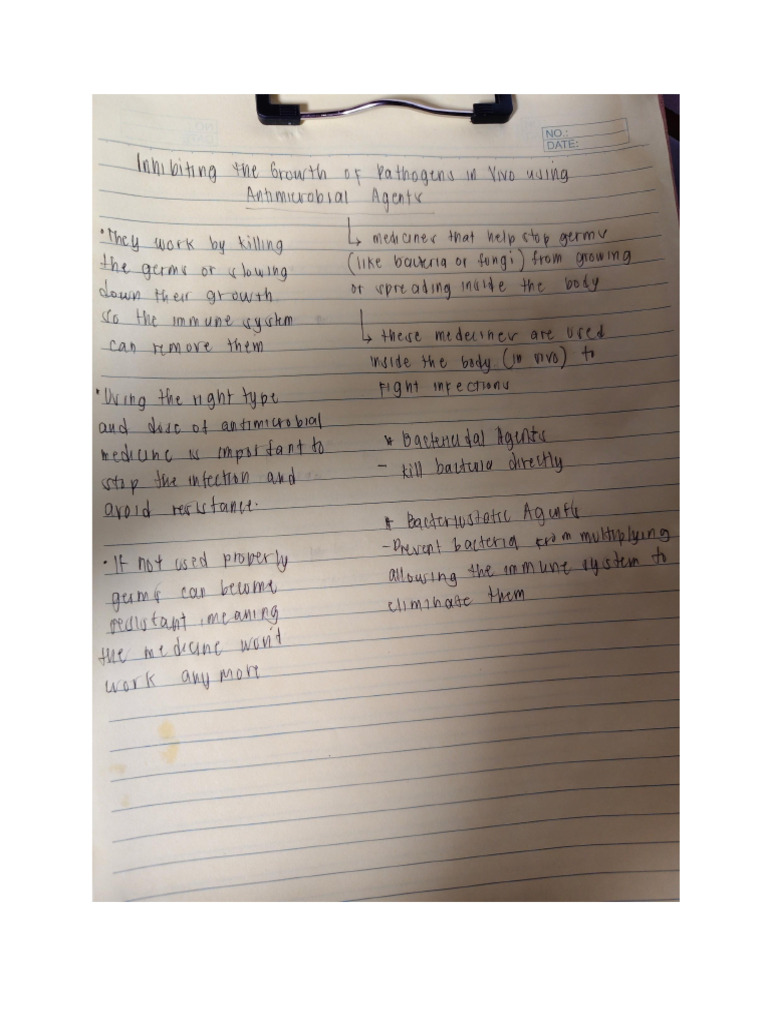 NO.:
DATE:
Inhibiting the Growth of Pathogens in Vivo using
Antimicrobial Agents
• They work by killing
the germs or slowing
down their growth
so the immune system
can remove them
• Using the right type
and dose of antimicrobial
medicine is important to
stop the infection and
avoid resistance.
• If not used properly
germs can become
resistant, meaning
the medicine won't
work any more
↳ medicines that help stop germs
(like bacteria or fungi) from growing
or spreading inside the body
↳ these medecines are used
inside the body (in vivo) to
fight infections
* Bactericidal Agents
- kill bacteria directly
* Bacteriostatic Agents
- Prevent bacteria from multiplying
allowing the immune system to
eliminate them